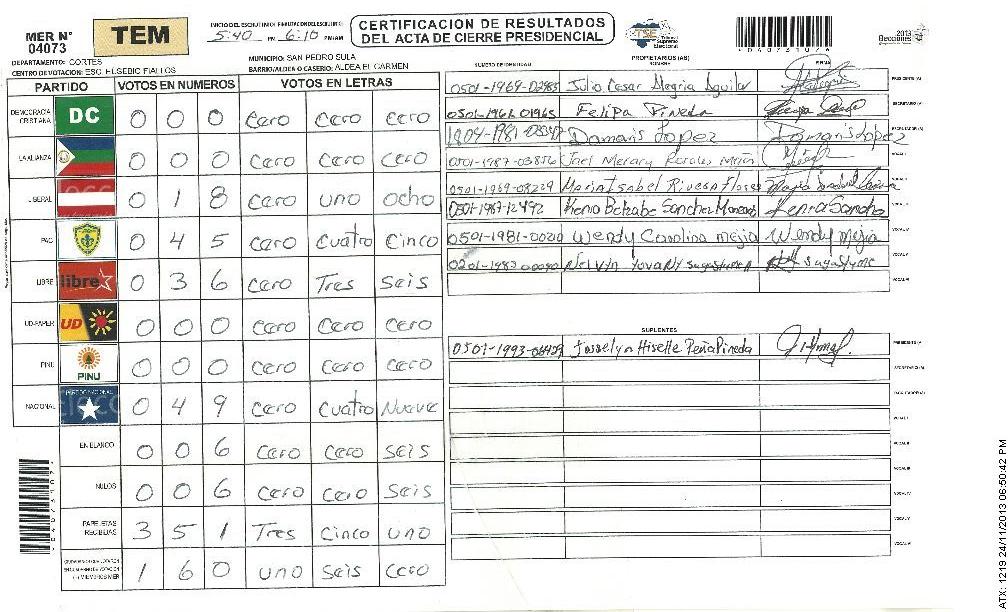 MER N° 04073
TEM
INICIO DEL ESCRUTINIO 5:40 PM 6:10 PM/AM
CERTIFICACION DE RESULTADOS
DEL ACTA DE CIERRE PRESIDENCIAL
TSE Tribunal Supremo Electoral
*04073107*
2013 Elecciones
DEPARTAMENTO: CORTES
MUNICIPIO: SAN PEDRO SULA
CENTRO DE VOTACION: ESC. EUSEBIO FIALLOS
BARRIO/ALDEA O CASERIO: ALDEA EL CARMEN
PARTIDO VOTOS EN NUMEROS VOTOS EN LETRAS
DEMOCRACIA CRISTIANA DC 0 0 0 cero cero cero
LA ALIANZA 0 0 0 cero cero cero
LIBERAL 0 1 8 cero uno ocho
PAC 0 4 5 cero cuatro cinco
LIBRE libre 0 3 6 cero Tres seis
UD-FAPER UD 0 0 0 cero cero cero
PINU PINU 0 0 0 cero cero cero
NACIONAL PARTIDO NACIONAL 0 4 9 cero cuatro Nueve
EN BLANCO 0 0 6 cero cero seis
NULOS 0 0 6 cero cero seis
PAPELETAS RECIBIDAS 3 5 1 Tres cinco uno
1 6 0 uno seis cero
PROPIETARIOS (AS)
NUMERO DE IDENTIDAD NOMBRE FIRMA
0501-1969-02985 Julio Cesar Alegria Aguilar PRESIDENTE (A)
Felipa Pineda SECRETARIO (A)
Damaris Lopez Damaris Lopez ESCRUTADOR (A)
0501-1987-03856 Joel Merary Rosales VOCAL I
0501-1969-08229 Maria Isabel Rivera Flores VOCAL II
0501-1967-12492 Kenia Betzabe Sanchez Kenia Sanchez VOCAL III
0501-1981-00210 Wendy Carolina mejia Wendy Mejia VOCAL IV
Nelvyn Yovany VOCAL V
VOCAL VI
SUPLENTES
0501-1993-06429 Josselyn Hiselle Peña Pineda PRESIDENTE (A)
SECRETARIO (A)
ESCRUTADOR (A)
VOCAL I
VOCAL II
VOCAL III
VOCAL IV
VOCAL V
VOCAL VI
*04073107*
ATX: 1219 24/11/2013 06:50:42 PM